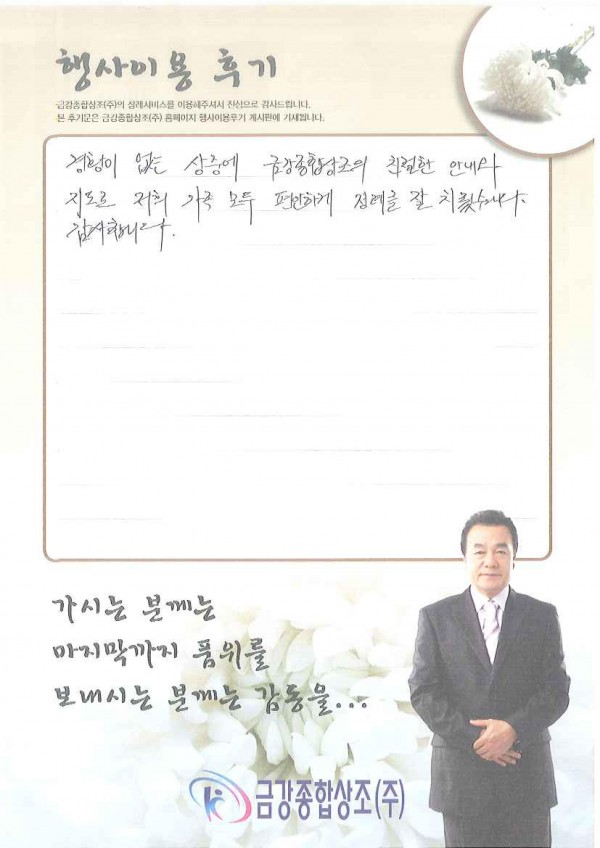 행사이용 후기
금강종합상조(주)의 장례서비스를 이용해주셔서 진심으로 감사드립니다.
본 후기문은 금강종합상조(주) 홈페이지 행사이용후기 게시판에 기재됩니다.
경험이 없는 상중에 금강종합상조의 친절한 안내와
지도로 저희 가족 모두 편안하게 장례를 잘 치뤘습니다.
감사합니다.
가시는 분께는
마지막까지 품위를
보내시는 분께는 감동을...
금강종합상조(주)